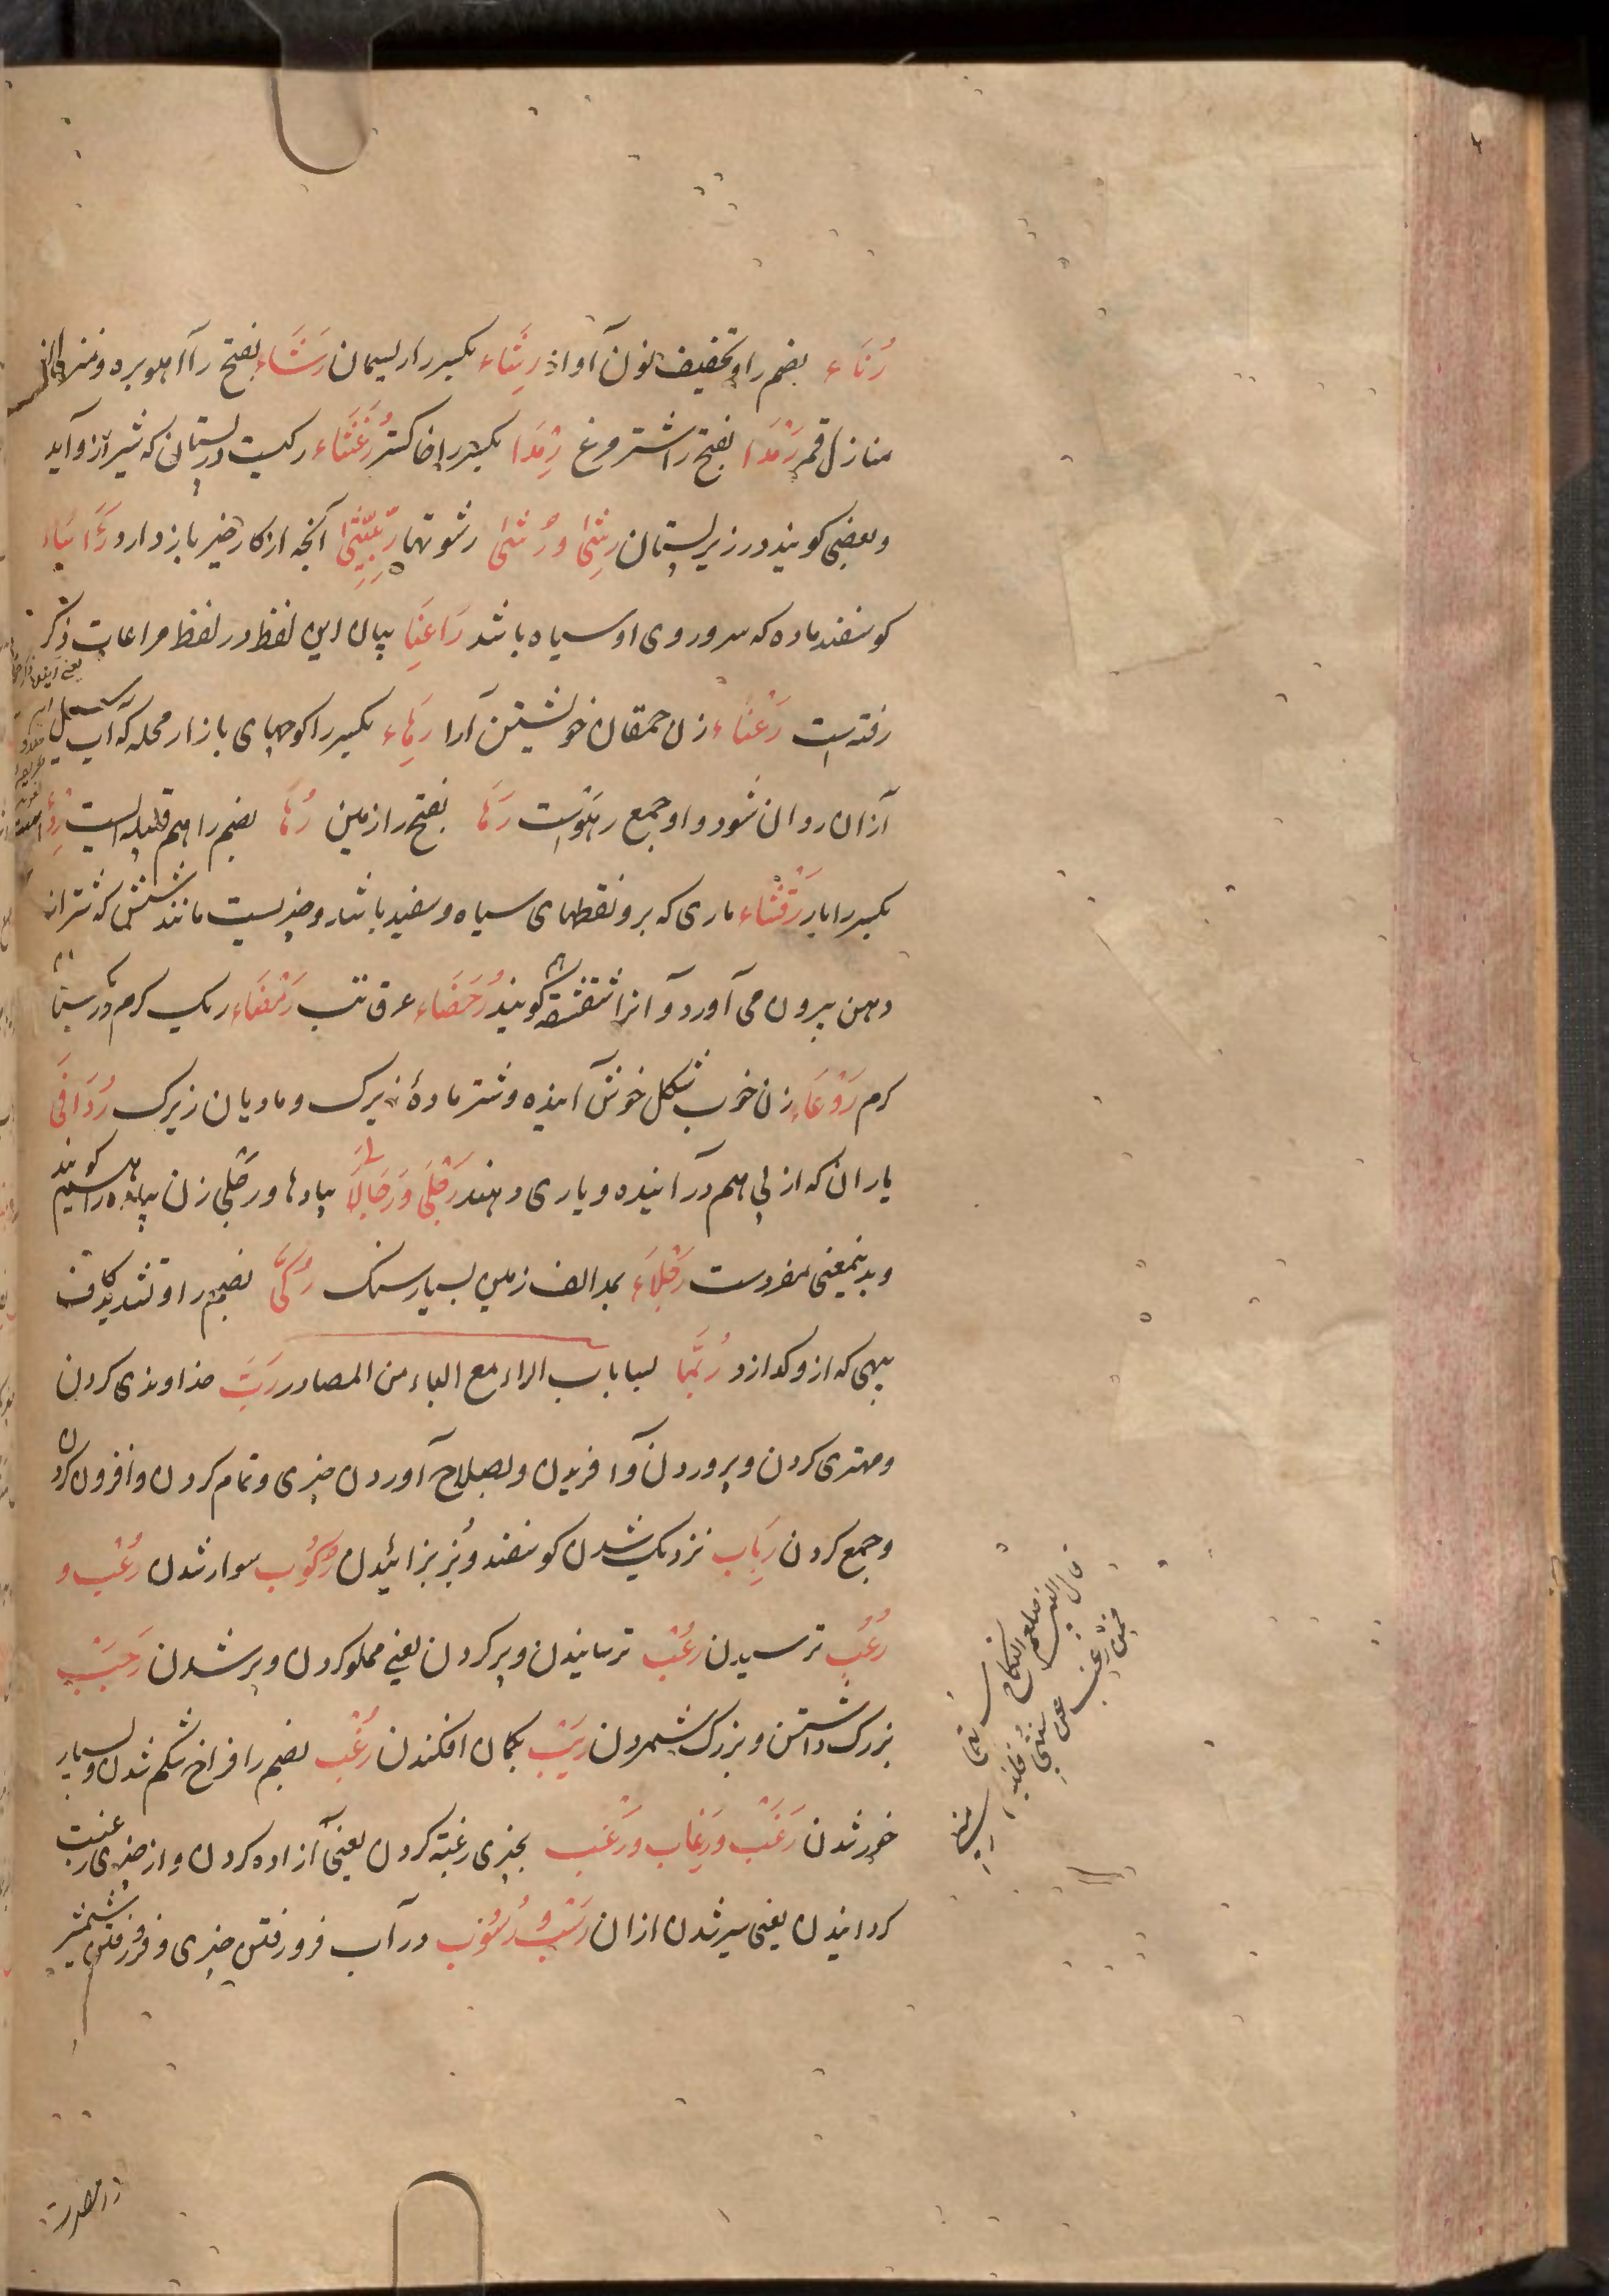 رُنَاء بضم را و تخفیف نون آواز رِشَاء بکسر را ریسمان رَشَاء بفتح را آهو بره و منزلی از
منازل قمر رَمْدَا بفتح را شتر مرغ رِمْدَا بکسر را خاکستر رُغَثَاء رکیست در پستان که شیر ازو آید
و بعضی کویند در زیر پستان رِشٰی و رُشٰی رشوتها رِبِّیثٰی آنچه از کار خیر باز دارد رَأْسَاء
کوسفند ماده که سر و روی او سیاه باشد رَاعِنَا بیان این لفظ در لفظ مراعات ذکر
رفته است رَعْنَاء زن حمقان خویشتن آرا رِهَاء بکسر را کوچهای بازار محله که آب
ازان روان شود و او جمع رهوست رَهَا بفتح را زمین رُهَا بضم را هم قبیله ایست
بکسر را یار رَقْشَاء ماری که برو نقطهای سیاه و سفید باشد و چیزیست مانند شش که شتر از
دهن بیرون می آورد و آنرا شقشقه کویند رُحَضَاء عرق تب رَمْضَاء ریک کرم و
کرم رَوْعَاء زن خوب شکل خوش آینده و شتر مادهٔ زیرک و مادیان زیرک رُدَافٰی
یاران که از پی هم درآینده و یاری دهند رَجْلٰی وَ رَجَالٰا پیادها و رجلی زن پیاده را هم کویند
و بدینمعنی مفردست رَجْلَاء بمد الف زمین بسیار سنک رُکّٰی بضم را و تشدید کاف
پیهی که ازو کدازد رُبَّمَا بسا باب الراء مع الباء من المصادر رَبّ خداوندی کردن
و مهتری کردن و پروردن و آفریدن و بصلاح آوردن چیزی و تمام کردن و افزون کردن
و جمع کردن رِبَاب نزدیک شدن کوسفند و بز بزائیدن رُکُوب سوار شدن رُعْب و
رُعُب ترسیدن رُعْب ترسانیدن و پر کردن یعنی مملو کردن و پر شدن رَجَبْ
بزرک داشتن و بزرک شمردن رَیْب بکمان افکندن رُغْب بضم را فراخ شکم شدن و بسیار
خور شدن رَغْب وَ رَغَاب وَ رَغَب بچیزی رغبة کردن یعنی آزاده کردن و از چیزی رغبت
کردانیدن یعنی سیر شدن ازان رَسْب و رُسُوب در آب فرو رفتن چیزی و فرو رفتن شمشیر